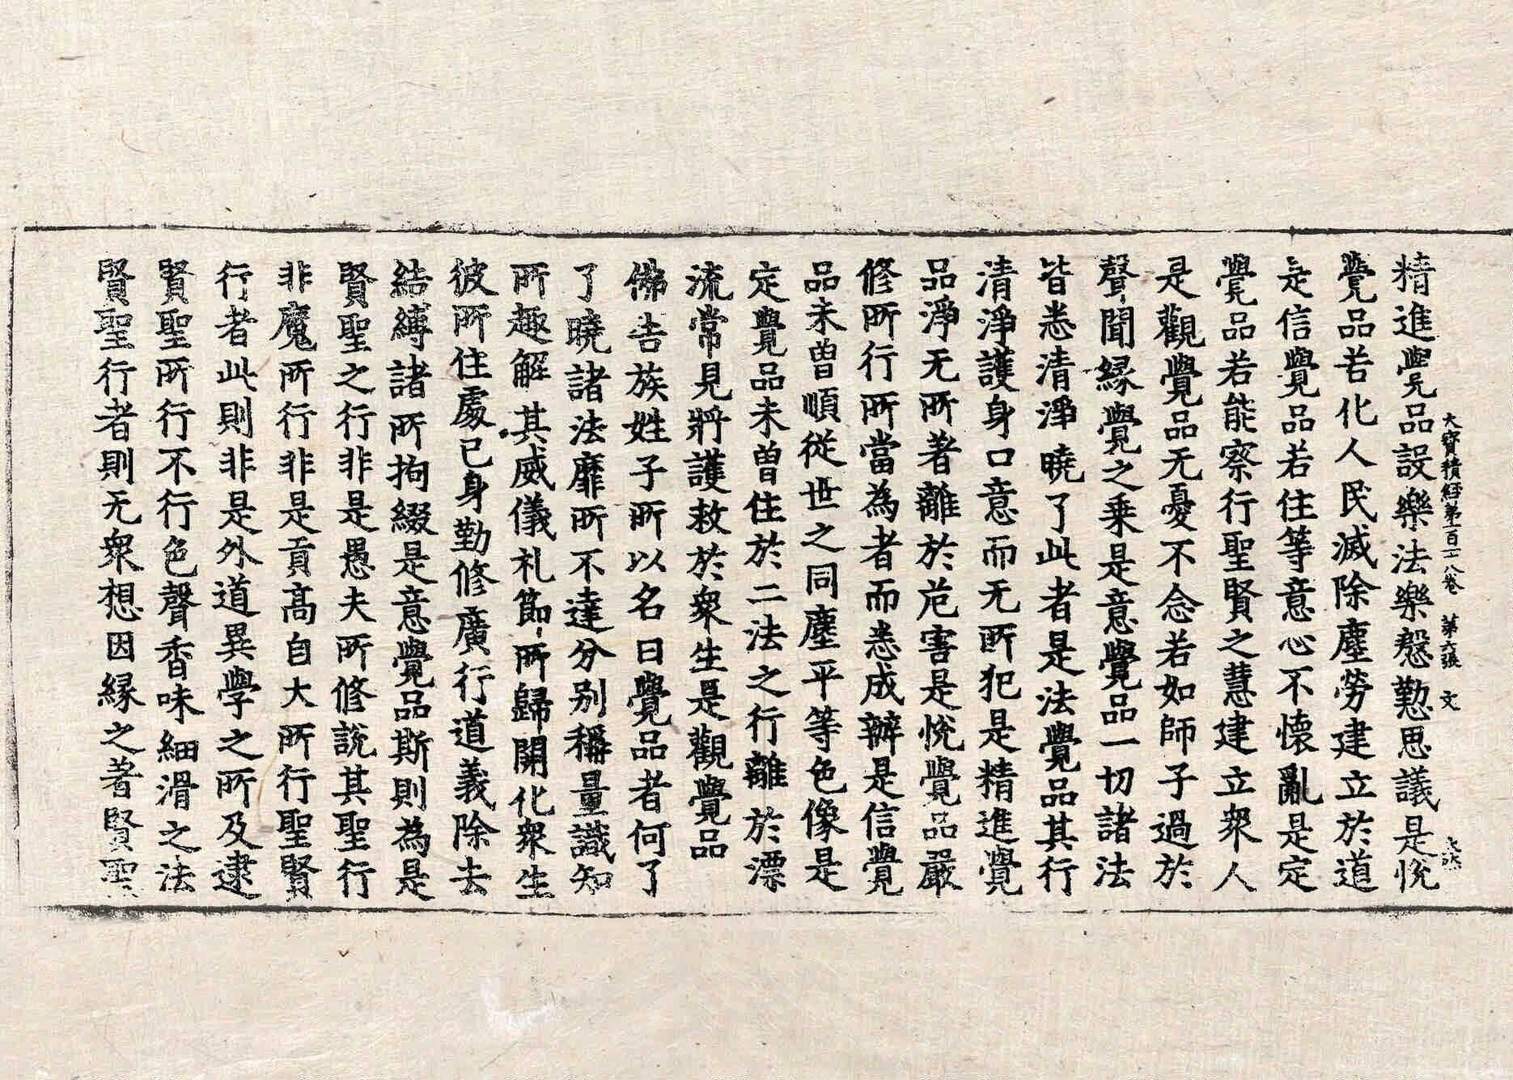 大寶積經第一百十八卷 第六張 文
精進覺品設樂法樂慇懃思議是悅
覺品若化人民滅除塵勞建立於道
是信覺品若住等意心不懷亂是定
覺品若能察行聖賢之慧建立眾人
是觀覺品无憂不念若如師子過於
聲聞緣覺之乘是意覺品一切諸法
皆悉清淨曉了此者是法覺品其行
清淨護身口意而无所犯是精進覺
品淨无所著離於危害是悅覺品嚴
修所行所當為者而悉成辦是信覺
品未曾順從世之同塵平等色像是
定覺品未曾住於二法之行離於漂
流常見將護救於眾生是觀覺品
佛告族姓子所以名曰覺品者何了
了曉諸法靡所不達分别稱量識知
所趣解其威儀礼節所歸開化眾生
彼所住處己身勤修廣行道義除去
結縛諸所拘綴是意覺品斯則為是
賢聖之行非是愚夫所修說其聖行
非魔所行非是貢高自大所行聖賢
行者此則非是外道異學之所及逮
賢聖所行不行色聲香味細滑之法
賢聖行者則无眾想因緣之著賢聖